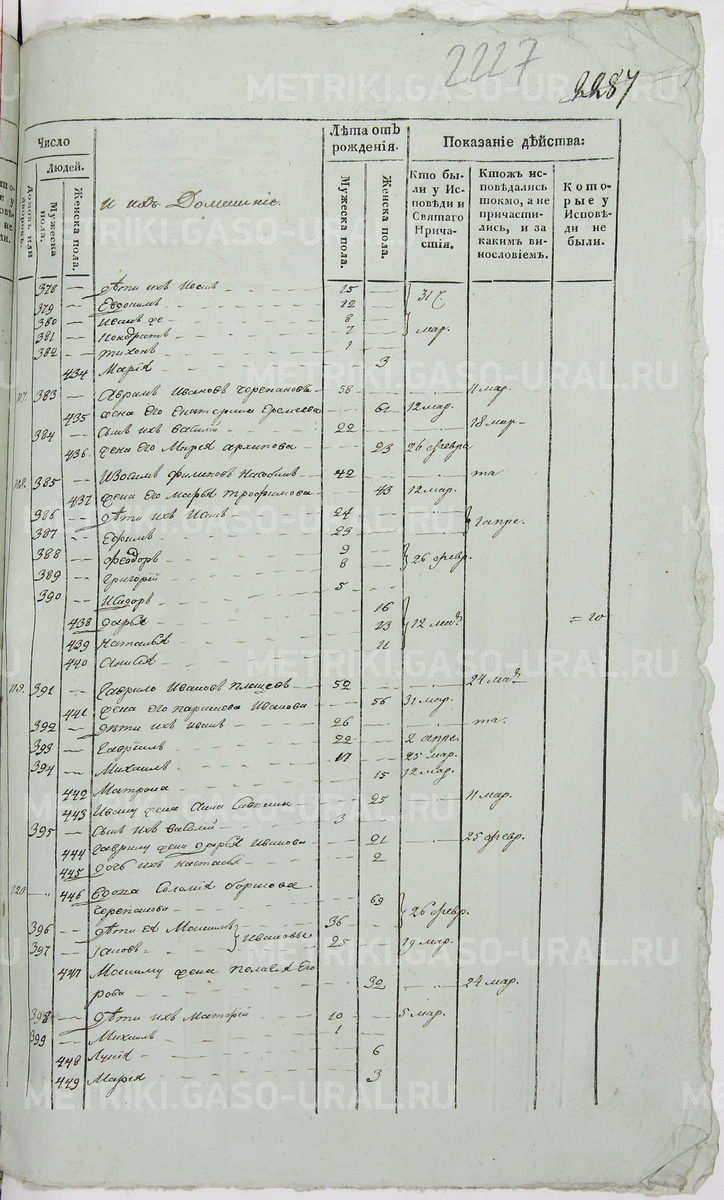 2227
2287
Число
Людей.
Домовъ или дворовъ.
Мужеска пола.
Женска пола.
И ихъ Домашніе.
Лѣта отъ рожденія.
Мужеска пола.
Женска пола.
Показаніе дѣйства:
Кто были у Исповѣди и Святаго Причастія.
Ктожъ исповѣдались токмо, а не причастились, и за какимъ винословіемъ.
Которые у Исповѣди не были.
378 — Дѣти ихъ 15
379 — Евдокимъ 12
380 — 8
381 — Кондратъ 7 мар.
382 — Тихонъ 1
434 Марія 3
117. 383 — Аврамъ Ивановъ Черепановъ 58 11 мар.
435 жена его Екатерина Еремеева 61 12 мар.
384 — Сынъ ихъ Василій 22 18 мар
436 жена его Марья Архипова 23 26 февра
118. 385 — Изосимъ Филиповъ 42 та
437 жена его Марья Трофимова 43 12 мар.
386 — дѣти ихъ Исакъ 24
387 — Ефимъ 23 1 апре.
388 — Феодоръ 9 26 февр.
389 — Григорій 8
390 — Исидоръ 5
438 Дарья 16
439 Наталья 13 12 мар
440 11
119. 391 — Гаврило Ивановъ 52 24 мар
441 жена его Парасковья Иванова 56 31 мар.
392 — дѣти ихъ Иванъ 26 та.
393 — Гавріилъ 22 2 апре.
394 — Михаилъ 17 25 мар.
442 Матрона 15 12 мар.
443 Ивану жена Анна Савина 25 11 мар.
395 — Сынъ ихъ Василій 3
444 Гаврилу жена Дарья Иванова 21 25 февр.
445 дочь ихъ Настасья 2
120 446 Вдова Соломія
Черепанова 69
396 — дѣти ея Максимъ 36 26 февр.
397 — Ивановы 25 19 мар.
447 Максиму жена Пелагея Его
рова 32 24 мар.
398 — дѣти ихъ 10 5 мар.
399 — Михаилъ 1
448 6
449 Марія 3
METRIKI.GASO-URAL.RU